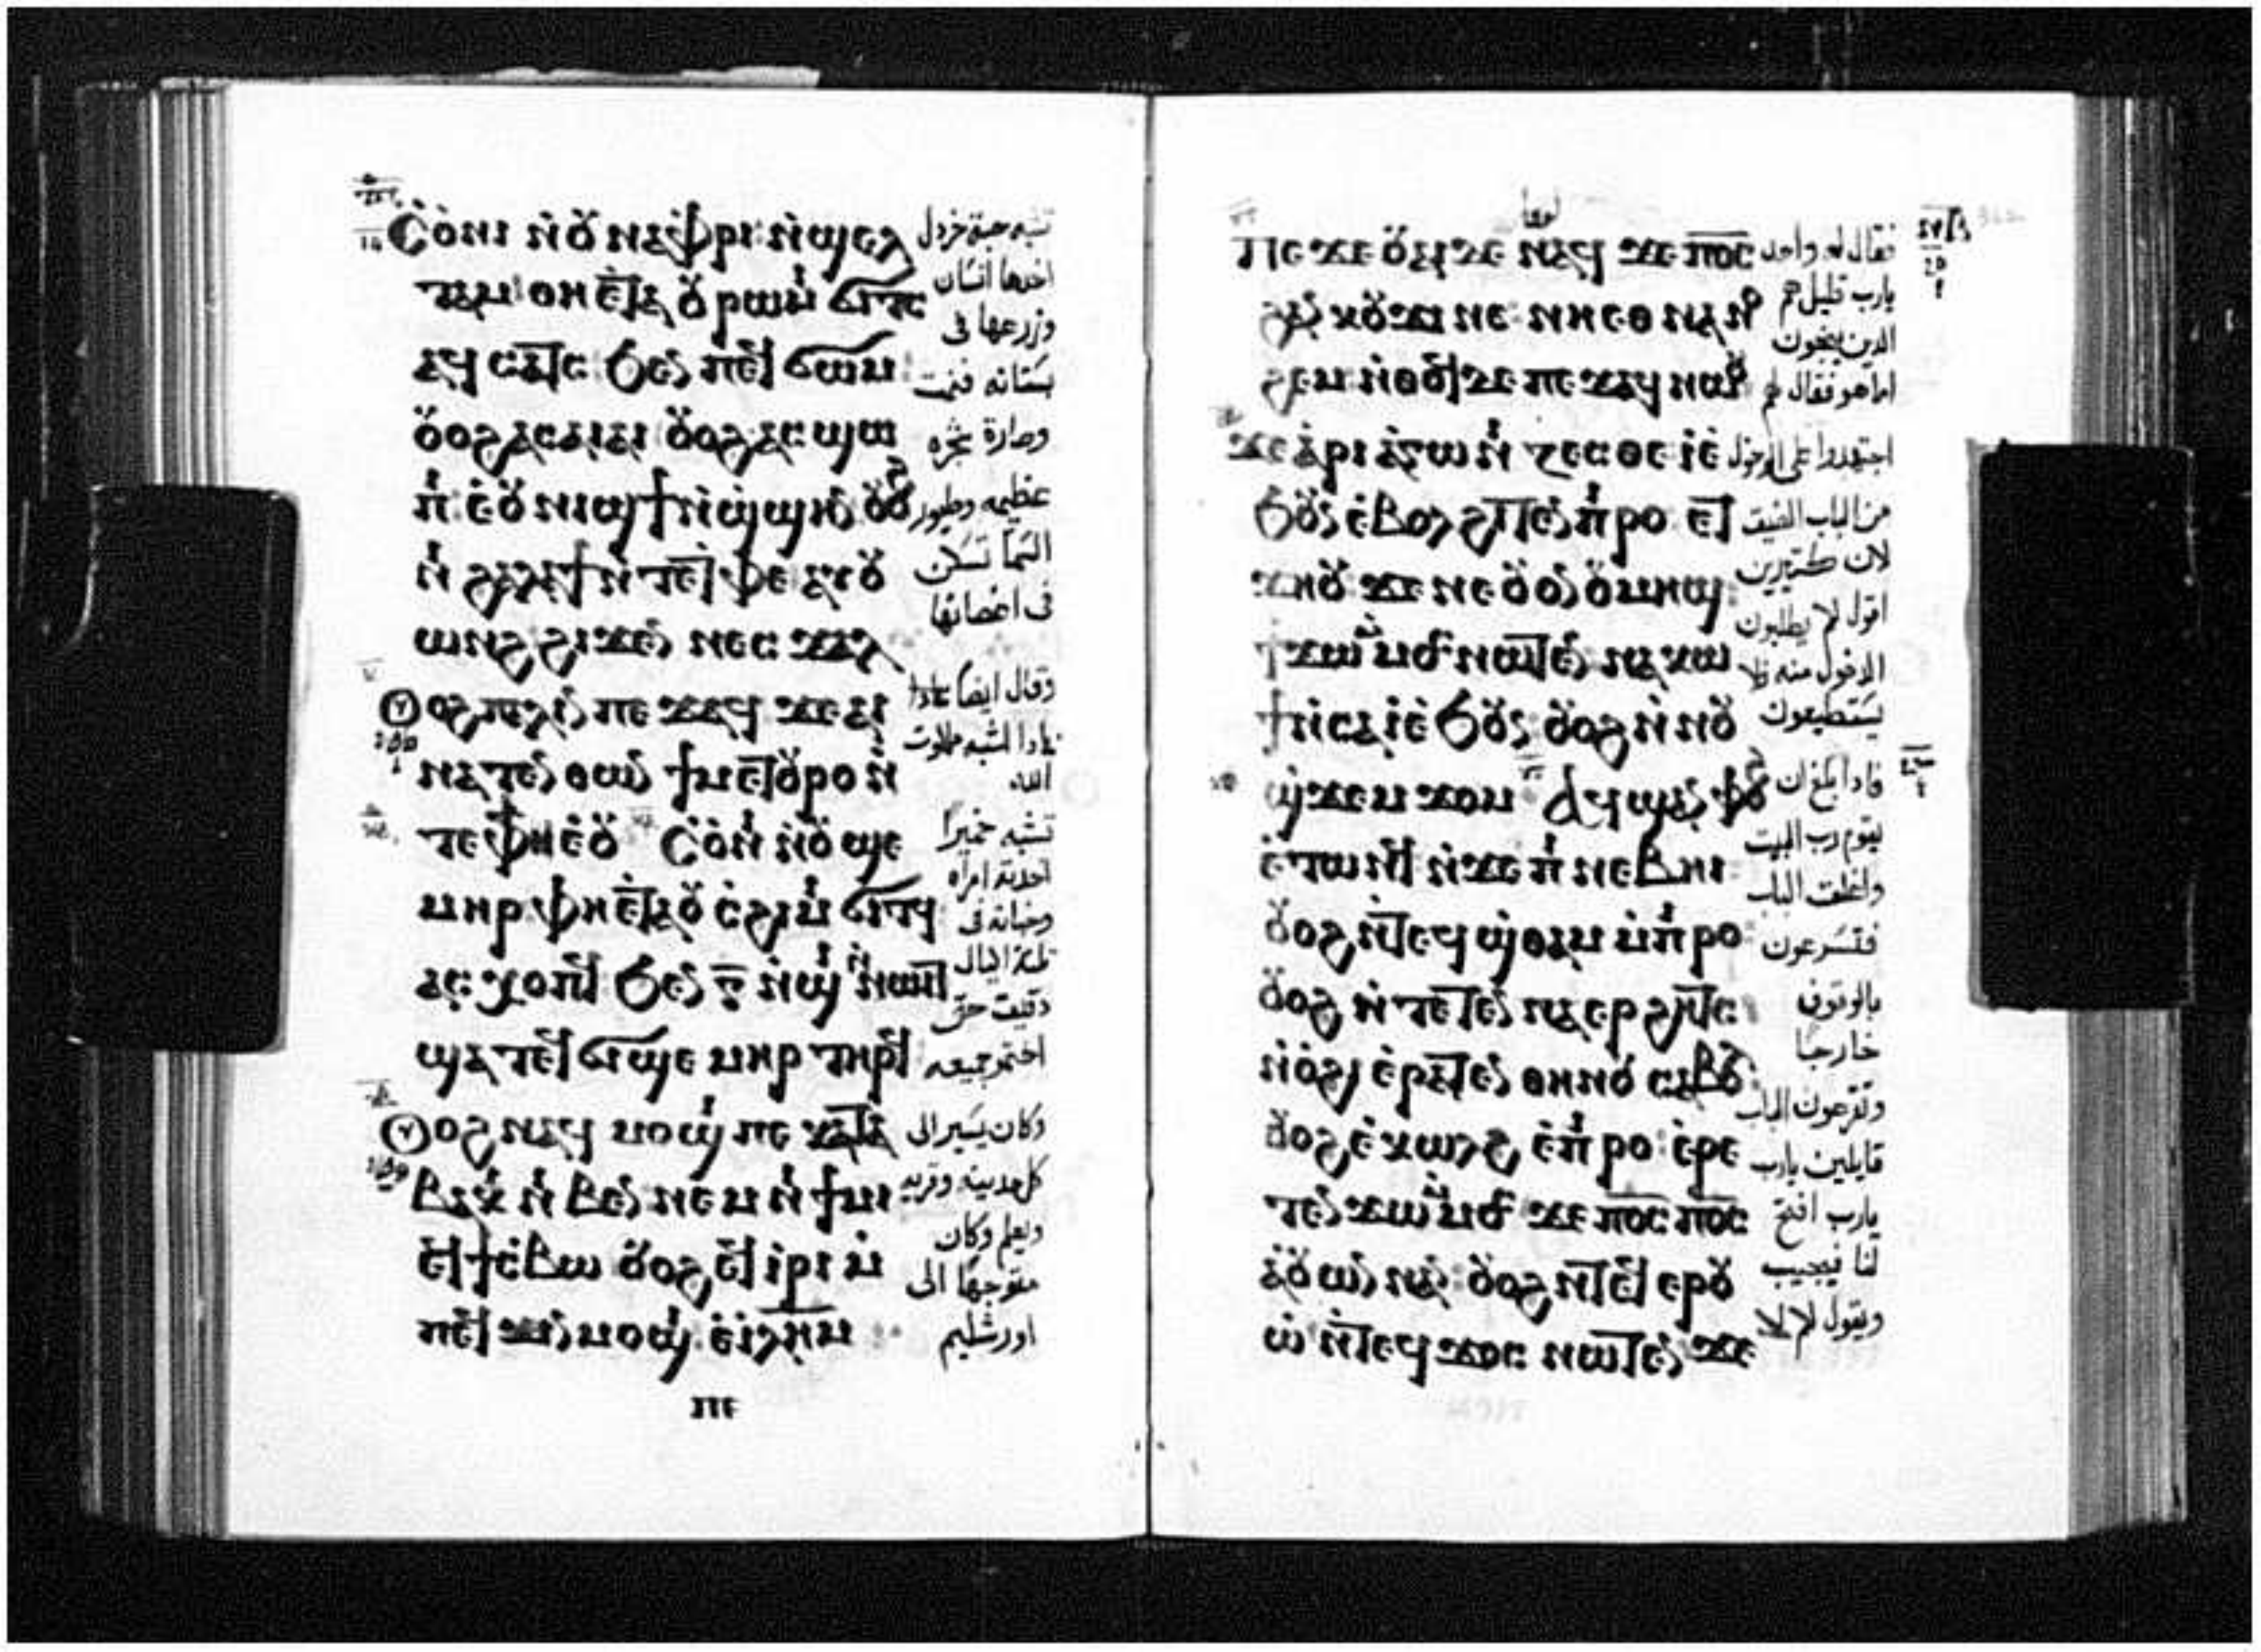 Ⲥⲟⲛⲓ ⲛⲟⲩⲛⲁⲫⲣⲓ ⲛϣⲉⲗ
ⲧⲁⲙ ⲑⲏⲉⲧⲁ ⲟⲩⲣⲱⲙⲓ ϭⲓⲧⲥ
ⲁϥⲥⲁⲧⲥ ϧⲉⲛ ⲡⲉϥϭⲱⲙ
ⲟⲩⲟϩ ⲁⲥⲁⲓⲁⲓ ⲟⲩⲟϩ ⲁⲥϣⲱ
ⲡⲓ ⲉⲟⲩⲛⲓϣϯ ⲛϣϣⲏⲛ ⲟⲩⲟϩ
ⲛⲓϩⲁⲗⲁϯ ⲛⲧⲉ ⲧⲫⲉ ⲁⲩⲟⲩ
ⲱϩ ϩⲓϫⲉⲛ ⲛⲉⲥϫⲁⲗ
Ⲟⲩⲟϩ ⲡⲁⲗⲓⲛ ⲡⲉϫⲁϥ ϫⲉ ⲁⲓ
ⲛⲁⲧⲉⲛⲑⲱⲛ ϯⲙⲉⲧⲟⲩⲣⲟ ⲛ
ⲧⲉ ⲫϯ ⲉⲟⲩ Ⲥⲟⲛⲓ ⲛⲟⲩϣⲉ
ⲙⲏⲣ ⲫⲏⲉⲧⲁ ⲟⲩⲥϩⲓⲙⲓ ϭⲓⲧϥ
ⲁⲥⲭⲟⲡϥ ϧⲉⲛ ⲅ̅ ⲛϣⲓ ⲛⲛⲱⲓⲧ
ϣⲁⲧⲉϥϭⲓϣⲉⲙⲏⲣ ⲧⲏⲣϥ
Ⲟⲩⲟϩ ⲛⲁϥⲙⲟϣⲓ ⲡⲉ ⲕⲁⲧⲁ
ⲃⲁⲕⲓ ⲛⲓⲃⲉⲛ ⲛⲉⲙ ⲛⲓϯⲙⲓ
ⲉϥϯⲥⲃⲱ ⲟⲩⲟϩ ⲉϥⲓⲣⲓ ⲙ
ⲡⲉϥϫⲓⲛⲙⲟϣⲓ ⲉⲓⲗⲏⲙ
تشبه حبة خردل
اخدها انسان
وزرعها فى
بستانه فنمت
وصارة شجره
عظيمه وطيور
السما تسكن
فى اغصانها
وقال ايضا
بمادا اشبه ملكوت
الله
تشبه خميرا
اخدته امراه
وخباته فى
ثلثة اكيال
دقيق حتى
اختمر جميعه
وكان يسير الى
كل مدينه وقريه
ويعلم وكان
متوجها الى
اورشليم
لوقا
Ⲡⲉϫⲉ ⲟⲩⲁⲓ ⲇⲉ ⲛⲁϥ ϫⲉ ⲡ̅ⲟ̅ⲥ̅
ϩⲁⲛⲕⲟⲩϫⲓ ⲛⲉ ⲛⲏⲉⲑⲛⲁⲛⲟ
ϩⲉⲙ ⲛⲑⲟϥ ⲇⲉ ⲡⲉϫⲁϥ ⲛⲱⲟⲩ
ϫⲉ ⲁⲣⲓⲁⲅⲱⲛⲓⲍⲉⲥⲑⲉ ⲓⲉ
ϧⲟⲩⲛ ⲉⲃⲟⲗ ϩⲓⲧⲉⲛ ⲡⲓⲣⲟ ⲉⲧ
ϫⲏⲟⲩ ϫⲉ ⲛⲉ ⲟⲩⲟⲛ ⲟⲩⲙⲏϣ
ϯϫⲱ ⲙⲙⲟⲥ ⲛⲱⲧⲉⲛ ⲛⲁⲕⲱ
ϯ ⲛⲥⲁ ⲓⲉϧⲟⲩⲛ ⲟⲩⲟϩ ⲛⲛⲟⲩ
ϣϫⲉⲙϫⲟⲙ Ⲁϥϣⲁⲛⲫⲟϩ
ⲉⲧⲱⲛϥ ⲛϫⲉ ⲡⲓⲛⲉⲃⲏⲓ
ⲟⲩⲟϩ ⲛⲧⲉϥϣⲑⲁⲙ ⲙⲡⲓⲣⲟ
ⲟⲩⲟϩ ⲛⲧⲉⲧⲉⲛⲁⲉⲣϩⲏⲧⲥ
ⲛⲟϩⲓ ⲉⲣⲁⲧⲉⲛ ⲑⲏⲛⲟⲩ ⲥⲁⲃⲟⲗ
ⲟⲩⲟϩ ⲉⲕⲱⲗϩ ⲉⲡⲓⲣⲟ ⲉⲣⲉ
ⲧⲉⲛϫⲱ ⲙⲙⲟⲥ ϫⲉ ⲡ̅ⲟ̅ⲥ̅ ⲡ̅ⲟ̅ⲥ̅
ⲁⲟⲩⲱⲛ ⲛⲁⲛ ⲟⲩⲟϩ ⲛⲧⲉϥⲉⲣⲟⲩ
ⲱ ⲛⲧⲉϥϫⲟⲥ ⲛⲱⲧⲉⲛ ϫⲉ
فقال له واحد
يارب قليل هم
الدين ينجون
اما هو فقال لهم
اجتهدوا على الدخول
من الباب الضيق
لان كتيرين
اقول لكم يطلبون
الدخول منه فلا
يستطيعون
فادا بلغ ان
يقوم رب البيت
واغلق الباب
فتسرعون
بالوقوف
خارجا
وتقرعون الباب
قايلين يارب
يارب افتح
لنا فيجيب
ويقول لكم